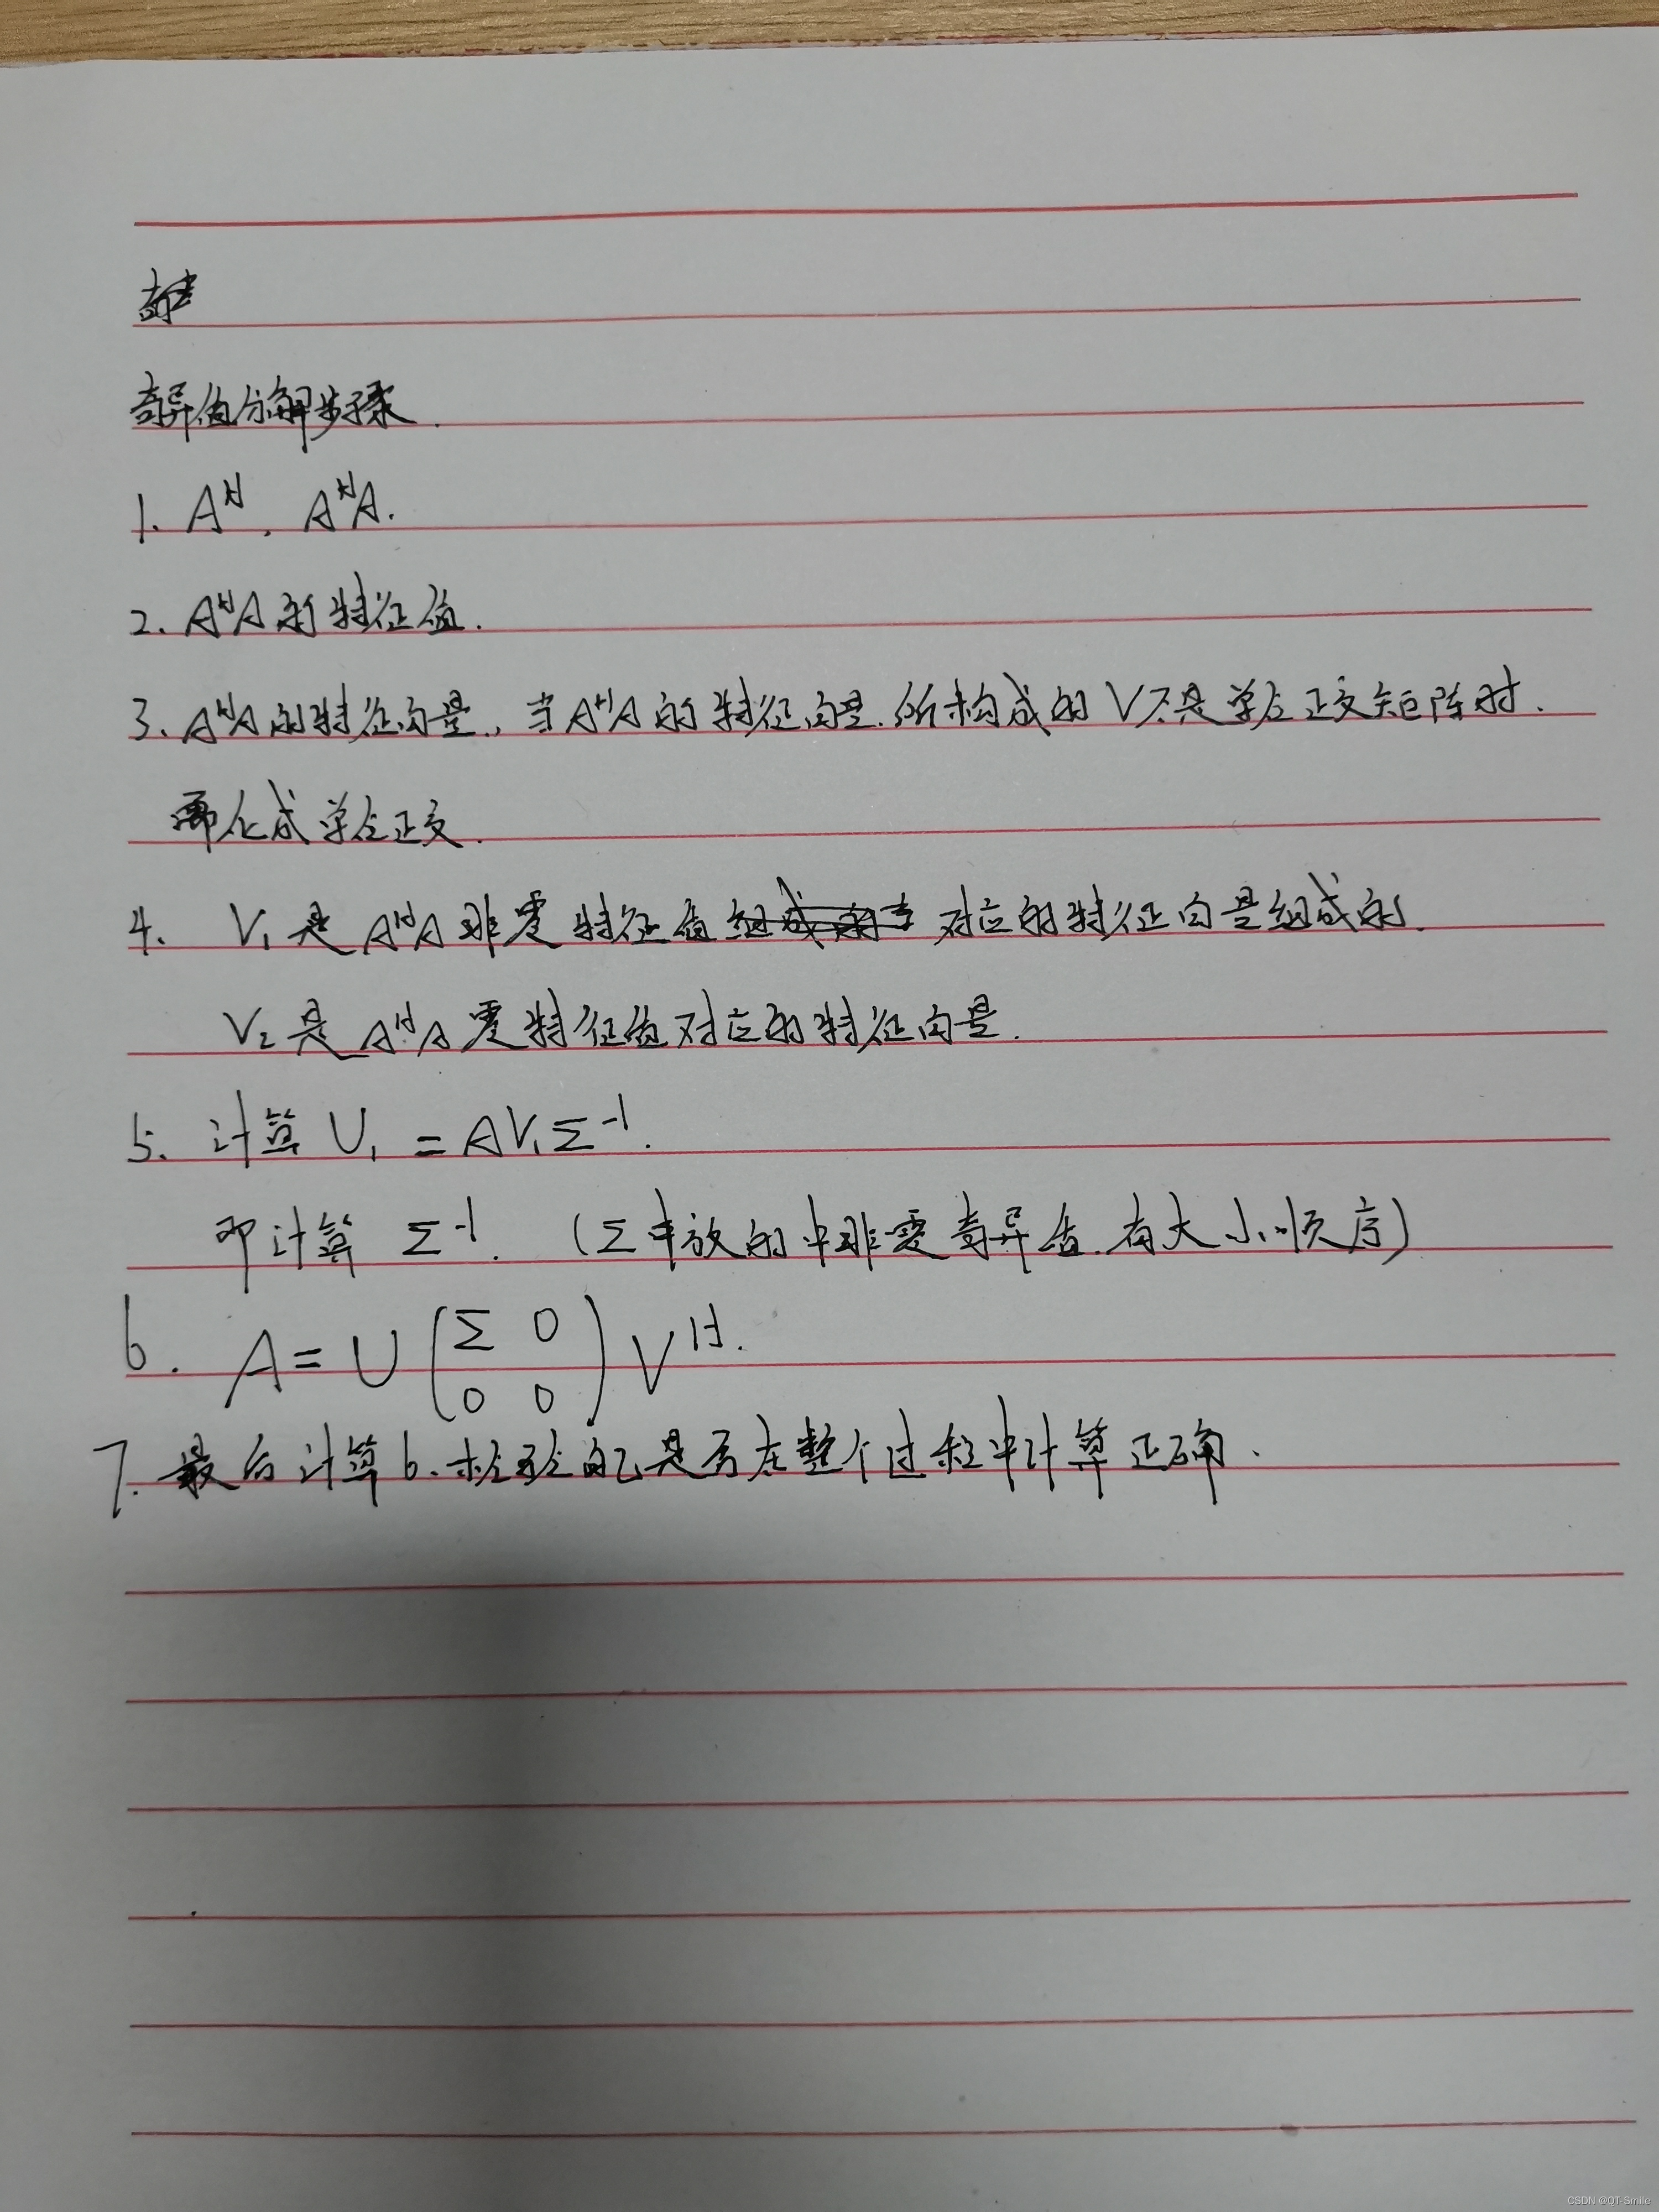 奇异值分解步骤.
1. Aᴴ, AᴴA.
2. AᴴA的特征值.
3. AᴴA的特征向量, 当AᴴA的特征向量所构成的V不是单位正交矩阵时.
需化成单位正交.
4. V₁是AᴴA非零特征值对应的特征向量组成的.
V₂是AᴴA零特征值对应的特征向量.
5. 计算 U₁ = AV₁Σ⁻¹.
即计算 Σ⁻¹. (Σ中放的中非零奇异值.有大小顺序)
6. A = U (Σ 0
0 0) Vᴴ.
7. 最后计算6.检验自己是否在整个过程中计算正确.
CSDN @QT-Smile